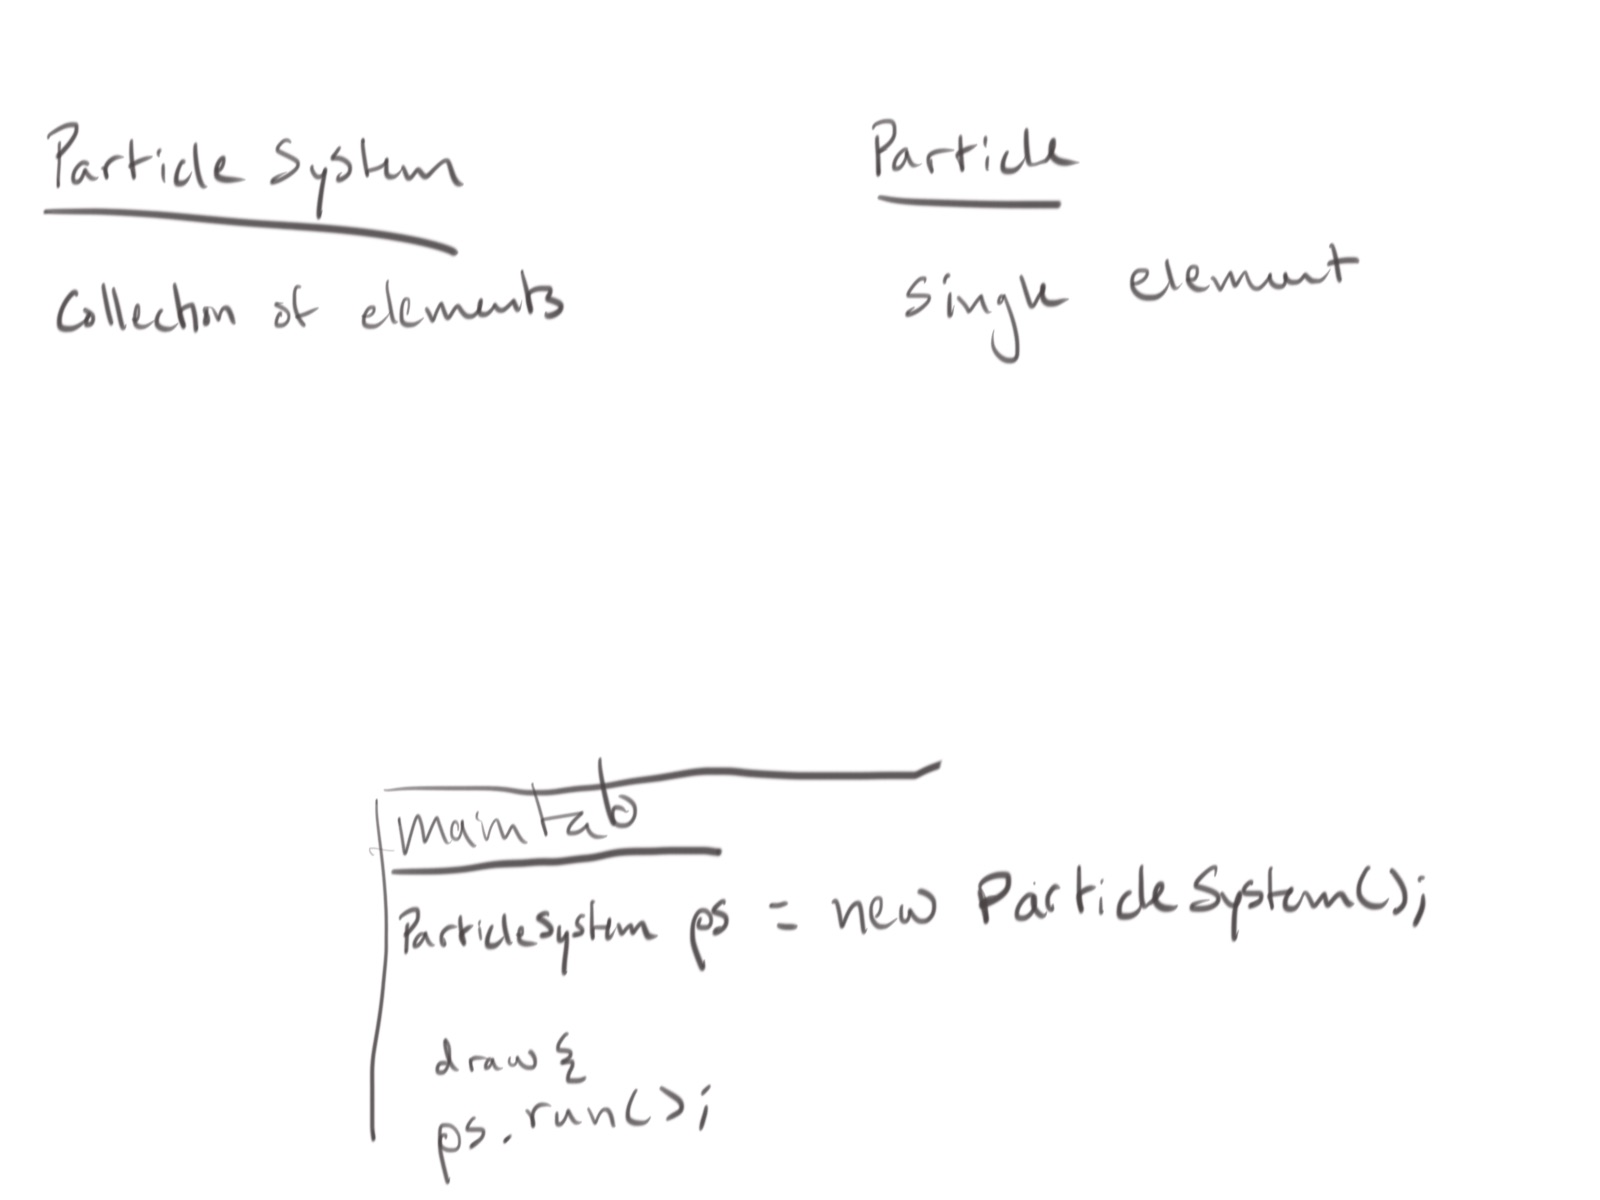 Particle System
Collection of elements
Particle
single element
main tab
ParticleSystem ps = new ParticleSystem();
draw {
ps.run();